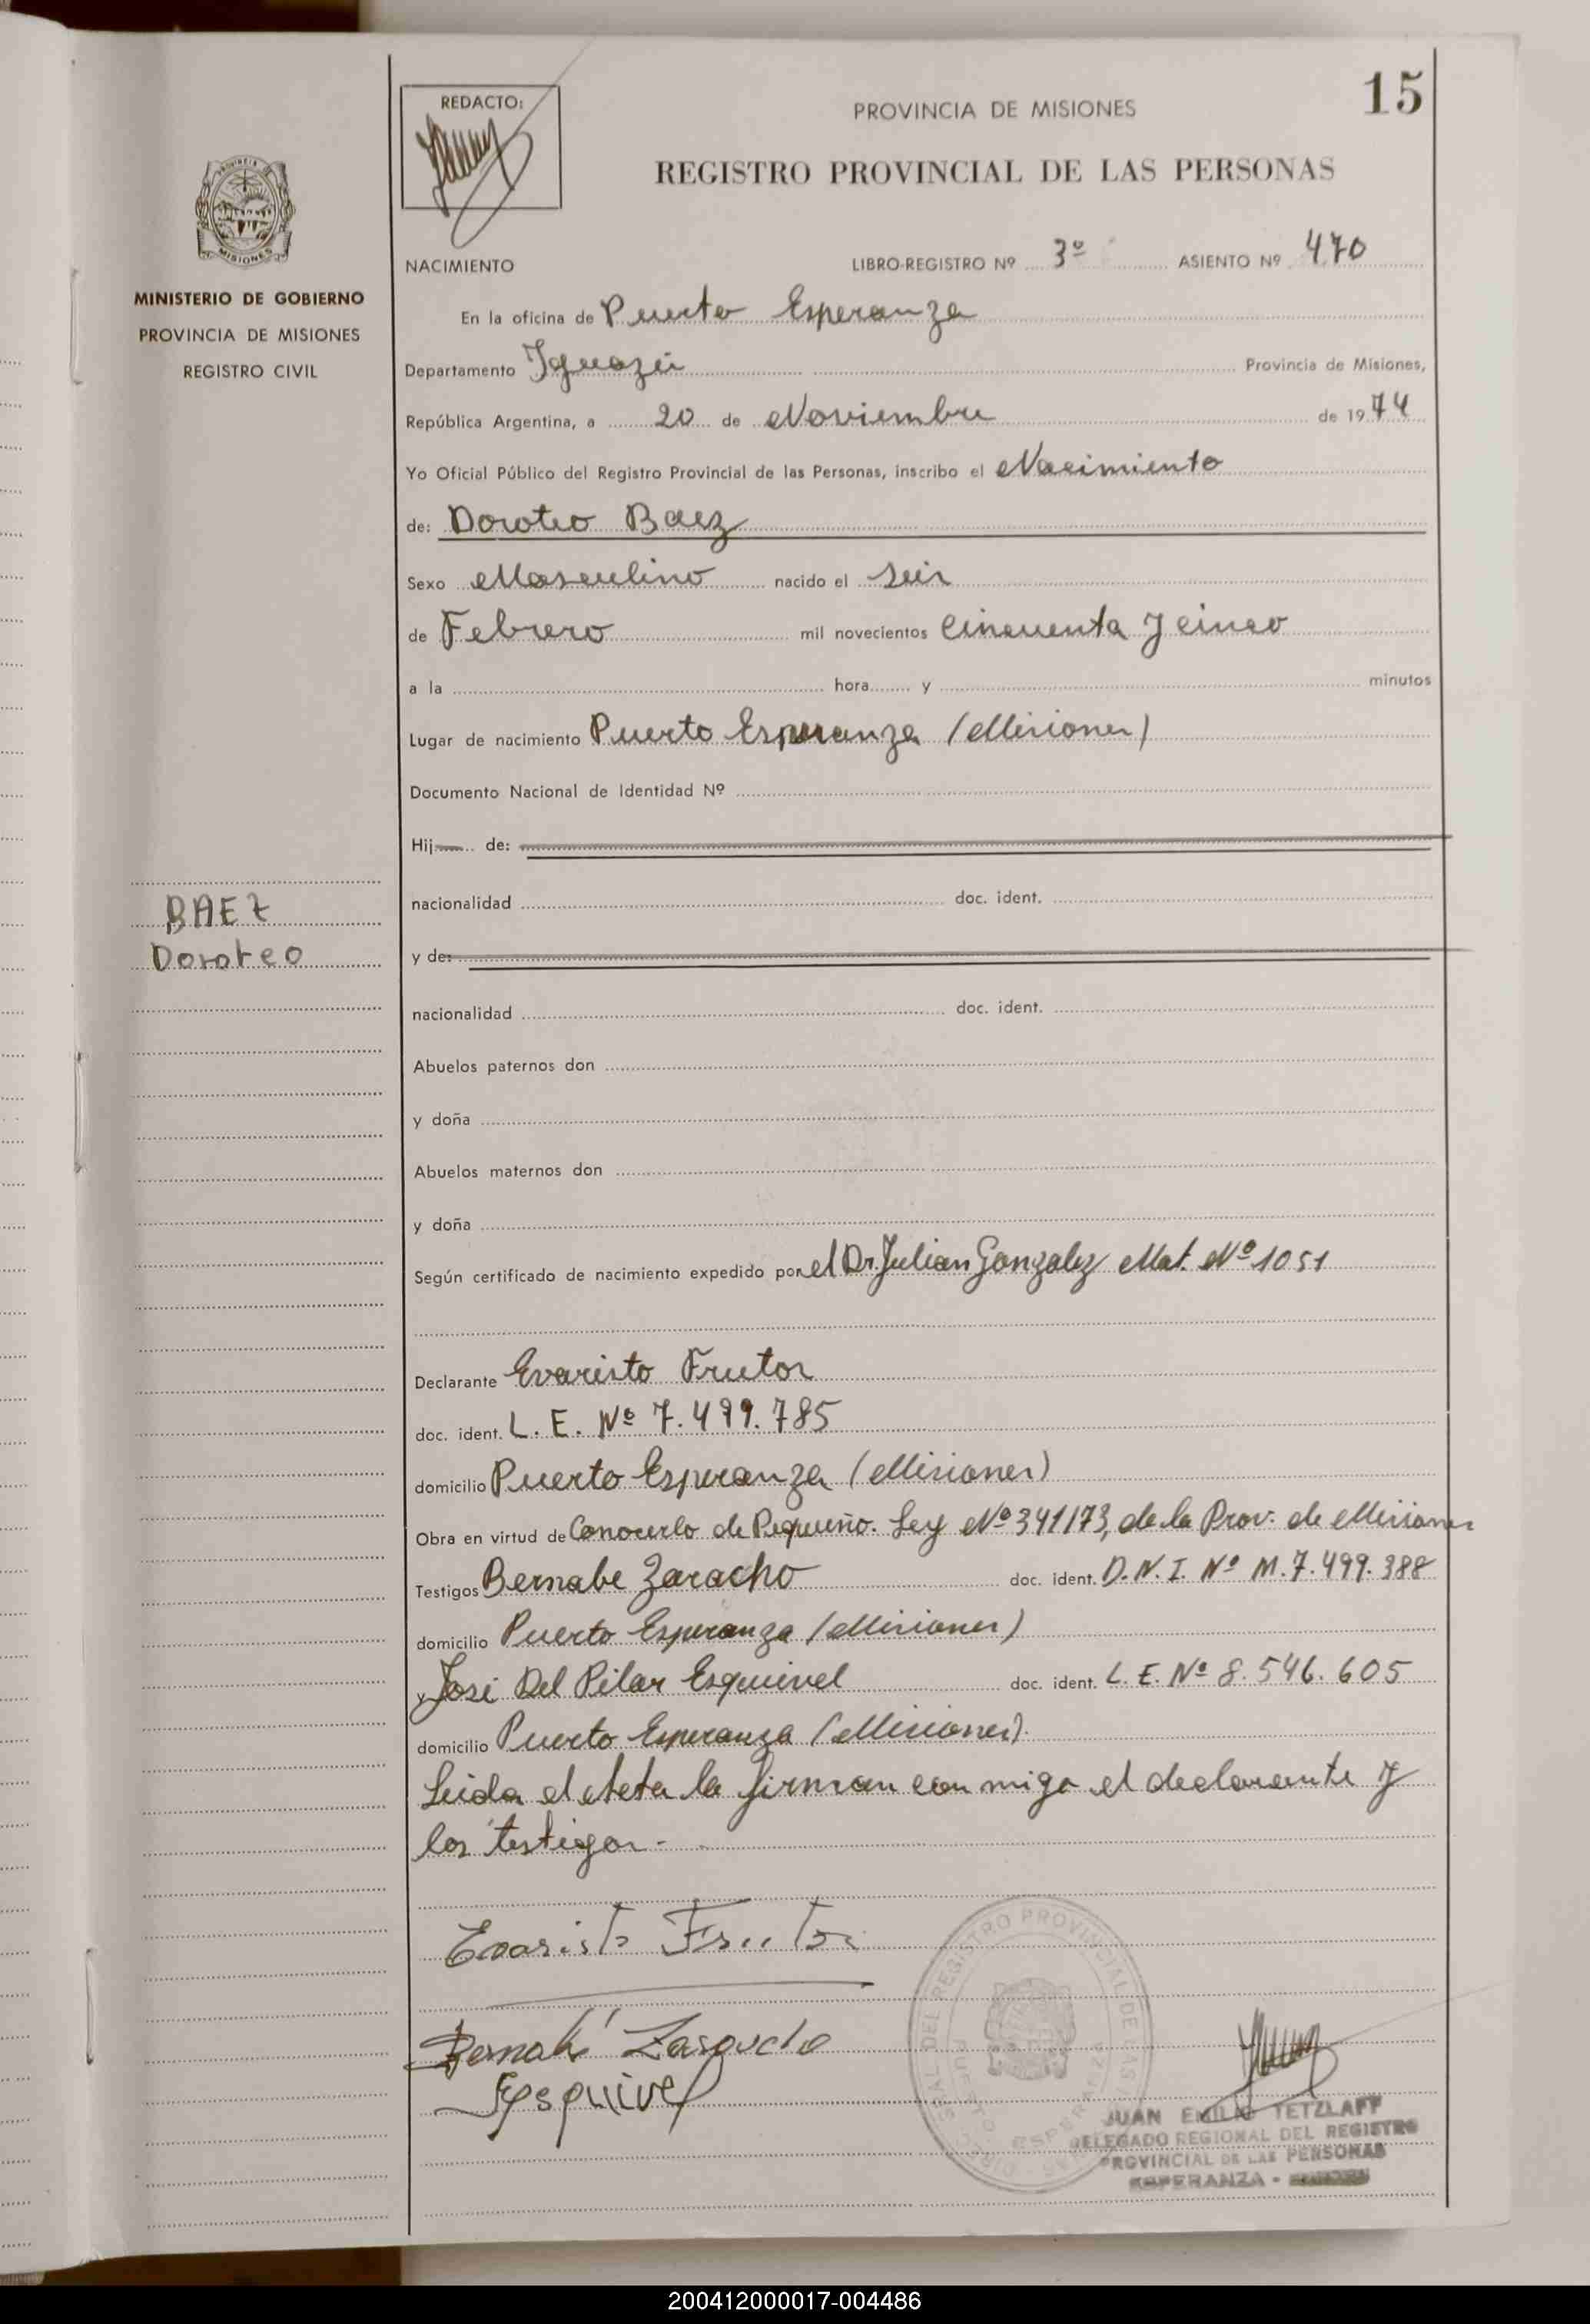 15
REDACTO:
PROVINCIA DE MISIONES
REGISTRO PROVINCIAL DE LAS PERSONAS
MISIONES
MINISTERIO DE GOBIERNO
PROVINCIA DE MISIONES
REGISTRO CIVIL
BAEZ
Doroteo
NACIMIENTO LIBRO-REGISTRO Nº 3º ASIENTO Nº 470
En la oficina de Puerto Esperanza
Departamento Iguazú Provincia de Misiones,
República Argentina, a 20 de Noviembre de 1974
Yo Oficial Público del Registro Provincial de las Personas, inscribo el Nacimiento
de: Doroteo Baez
Sexo Masculino nacido el seis
de Febrero mil novecientos cincuenta y cinco
a la hora y minutos
Lugar de nacimiento Puerto Esperanza (Misiones)
Documento Nacional de Identidad Nº
Hij de:
nacionalidad doc. ident.
y de:
nacionalidad doc. ident.
Abuelos paternos don
y doña
Abuelos maternos don
y doña
Según certificado de nacimiento expedido por el Dr. Julian Gonzalez Mat. Nº 1051
Declarante Evaristo Frutos
doc. ident. L. E. Nº 7.499.785
domicilio Puerto Esperanza (Misiones)
Obra en virtud de Conocerlo de Pequeño. Ley Nº 341/73, de la Prov. de Misiones
Testigos Bernabe Zaracho doc. ident. D.N.I. Nº M.7.499.388
domicilio Puerto Esperanza (Misiones)
y José Del Pilar Esquivel doc. ident. L. E. Nº 8.546.605
domicilio Puerto Esperanza (Misiones).
Leida el Acta la firman con migo el declarante y
los testigos.-
Evaristo Frutos
Bernabé Zaracho
Esquivel
JUAN EMILIO TETZLAFF
DELEGADO REGIONAL DEL REGISTRO
PROVINCIAL DE LAS PERSONAS
ESPERANZA -
200412000017-004486